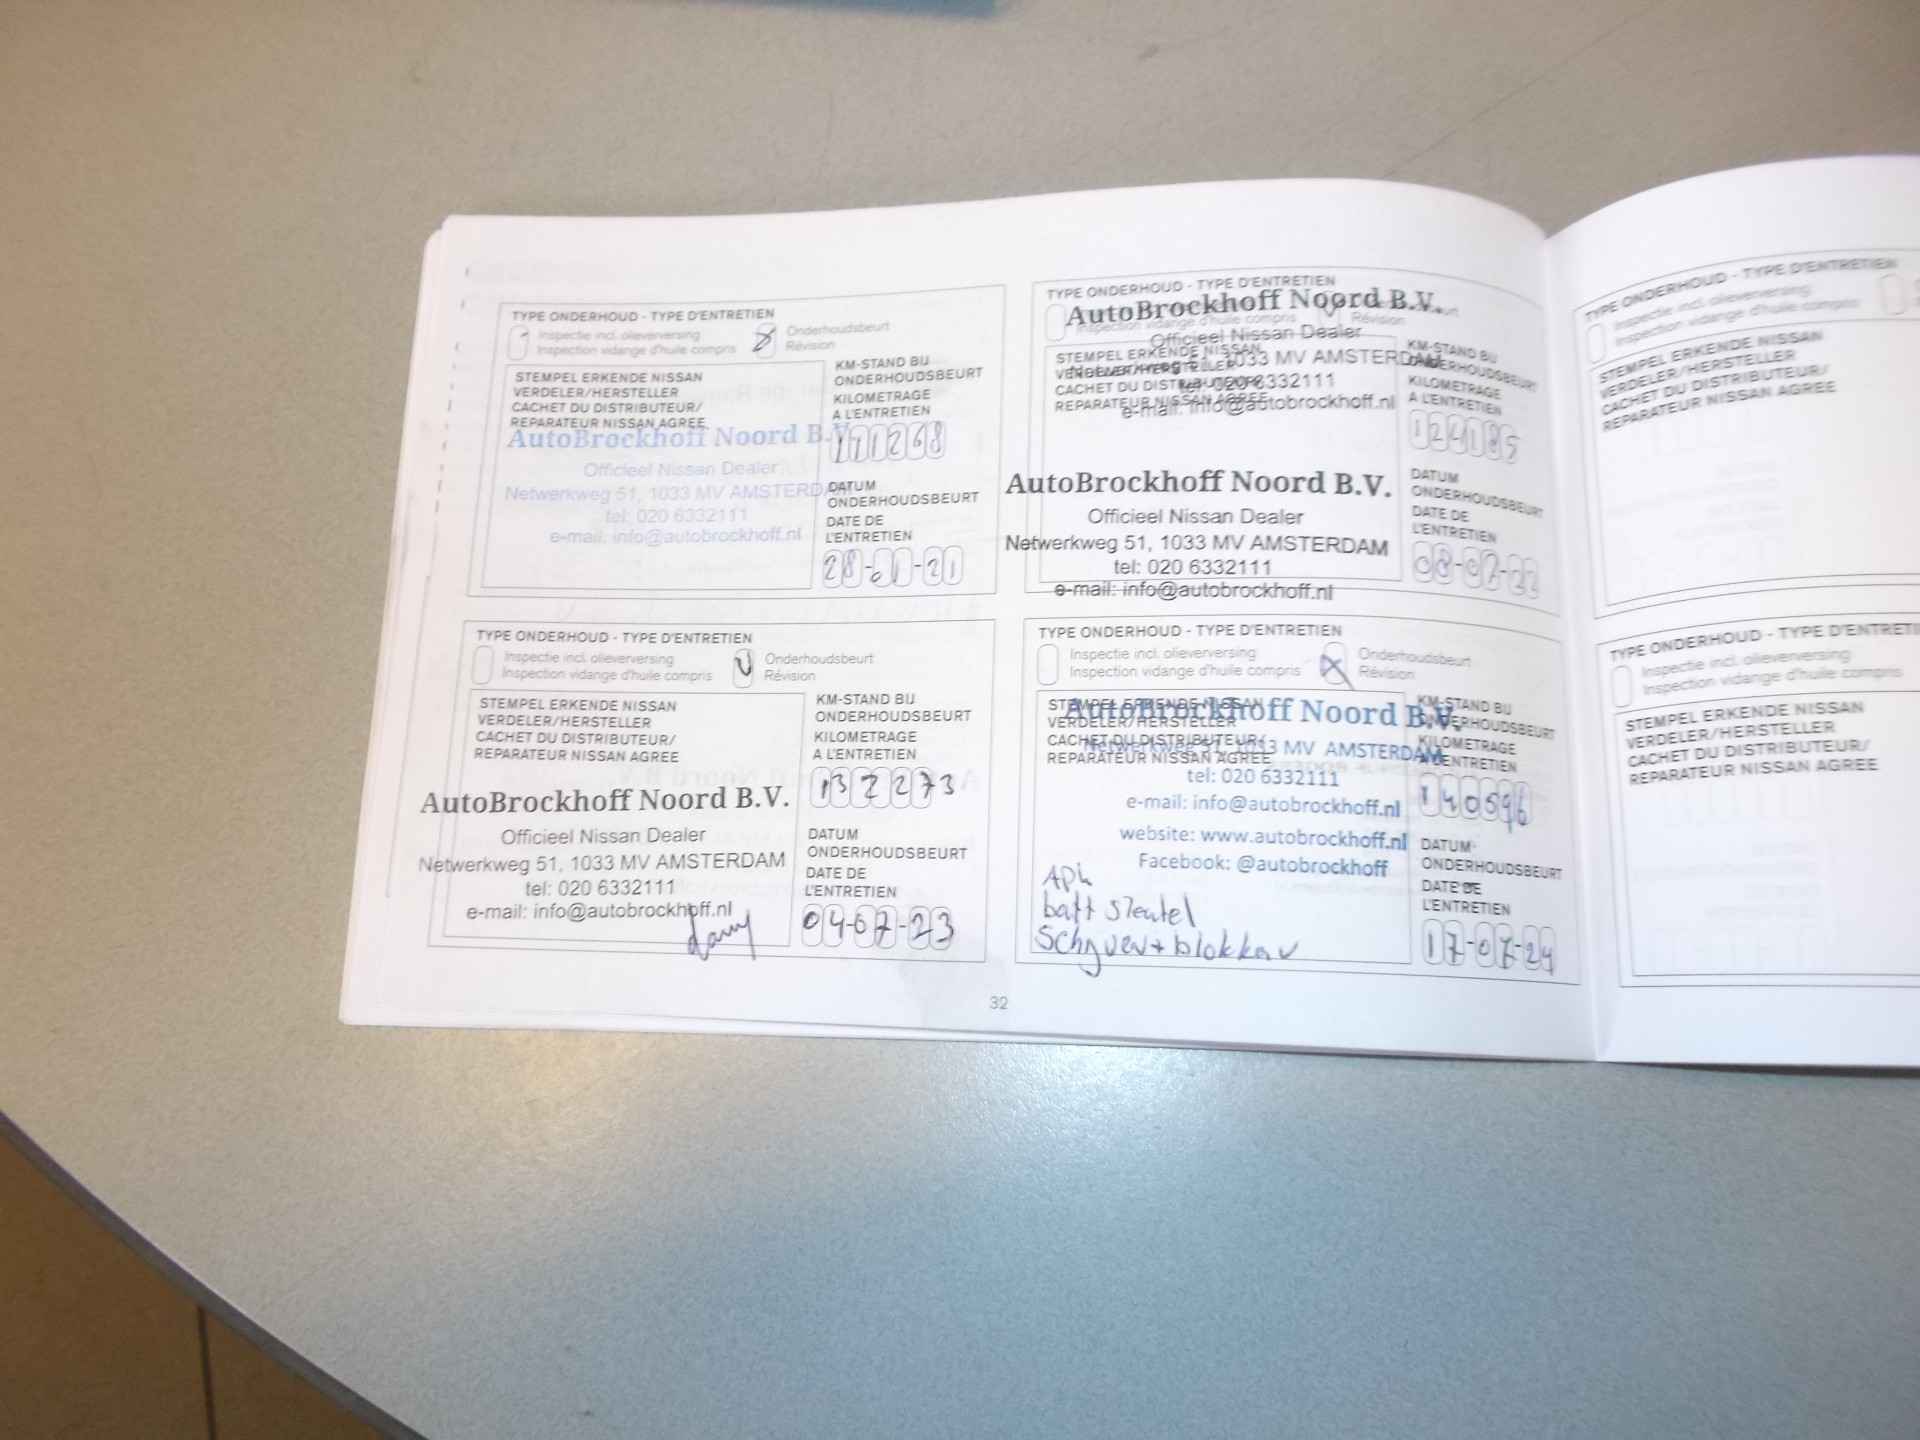 TYPE ONDERHOUD - TYPE D'ENTRETIEN
Inspectie incl. olieverversing
Inspection vidange d'huile compris
Onderhoudsbeurt
Révision
STEMPEL ERKENDE NISSAN
VERDELER/HERSTELLER
CACHET DU DISTRIBUTEUR/
REPARATEUR NISSAN AGREE
AutoBrockhoff Noord B.V.
Officieel Nissan Dealer
Netwerkweg 51, 1033 MV AMSTERDAM
tel: 020 6332111
e-mail: info@autobrockhoff.nl
KM-STAND BIJ
ONDERHOUDSBEURT
KILOMETRAGE
A L'ENTRETIEN
111268
DATUM
ONDERHOUDSBEURT
DATE DE
L'ENTRETIEN
28-01-21
TYPE ONDERHOUD - TYPE D'ENTRETIEN
AutoBrockhoff Noord B.V.
Inspection vidange d'huile compris
Révision
Officieel Nissan Dealer
STEMPEL ERKENDE NISSAN
VERDELER/HERSTELLER
1033 MV AMSTERDAM
CACHET DU DISTRIBUTEUR/
tel: 020 6332111
REPARATEUR NISSAN AGREE
e-mail: info@autobrockhoff.nl
AutoBrockhoff Noord B.V.
Officieel Nissan Dealer
Netwerkweg 51, 1033 MV AMSTERDAM
tel: 020 6332111
e-mail: info@autobrockhoff.nl
KM-STAND BIJ
ONDERHOUDSBEURT
KILOMETRAGE
A L'ENTRETIEN
124185
DATUM
ONDERHOUDSBEURT
DATE DE
L'ENTRETIEN
08-07-22
TYPE ONDERHOUD - TYPE D'ENTRETIEN
Inspectie incl. olieverversing
Inspection vidange d'huile compris
Onderhoudsbeurt
Révision
STEMPEL ERKENDE NISSAN
VERDELER/HERSTELLER
CACHET DU DISTRIBUTEUR/
REPARATEUR NISSAN AGREE
AutoBrockhoff Noord B.V.
Officieel Nissan Dealer
Netwerkweg 51, 1033 MV AMSTERDAM
tel: 020 6332111
e-mail: info@autobrockhoff.nl
KM-STAND BIJ
ONDERHOUDSBEURT
KILOMETRAGE
A L'ENTRETIEN
132273
DATUM
ONDERHOUDSBEURT
DATE DE
L'ENTRETIEN
04-07-23
TYPE ONDERHOUD - TYPE D'ENTRETIEN
Inspectie incl. olieverversing
Inspection vidange d'huile compris
Onderhoudsbeurt
Révision
STEMPEL ERKENDE NISSAN
AutoBrockhoff Noord B.V.
VERDELER/HERSTELLER
CACHET DU DISTRIBUTEUR/
Netwerkweg 51, 1033 MV AMSTERDAM
REPARATEUR NISSAN AGREE
tel: 020 6332111
e-mail: info@autobrockhoff.nl
website: www.autobrockhoff.nl
Facebook: @autobrockhoff
APk
batt sleutel
Schyven + blokken
KM-STAND BIJ
ONDERHOUDSBEURT
KILOMETRAGE
A L'ENTRETIEN
140596
DATUM
ONDERHOUDSBEURT
DATE DE
L'ENTRETIEN
17-07-24
32
TYPE ONDERHOUD - TYPE D'ENTRETIEN
Inspectie incl. olieverversing
Inspection vidange d'huile compris
STEMPEL ERKENDE NISSAN
VERDELER/HERSTELLER
CACHET DU DISTRIBUTEUR/
REPARATEUR NISSAN AGREE
TYPE ONDERHOUD - TYPE D'ENTRETI
Inspectie incl. olieverversing
Inspection vidange d'huile compris
STEMPEL ERKENDE NISSAN
VERDELER/HERSTELLER
CACHET DU DISTRIBUTEUR/
REPARATEUR NISSAN AGREE